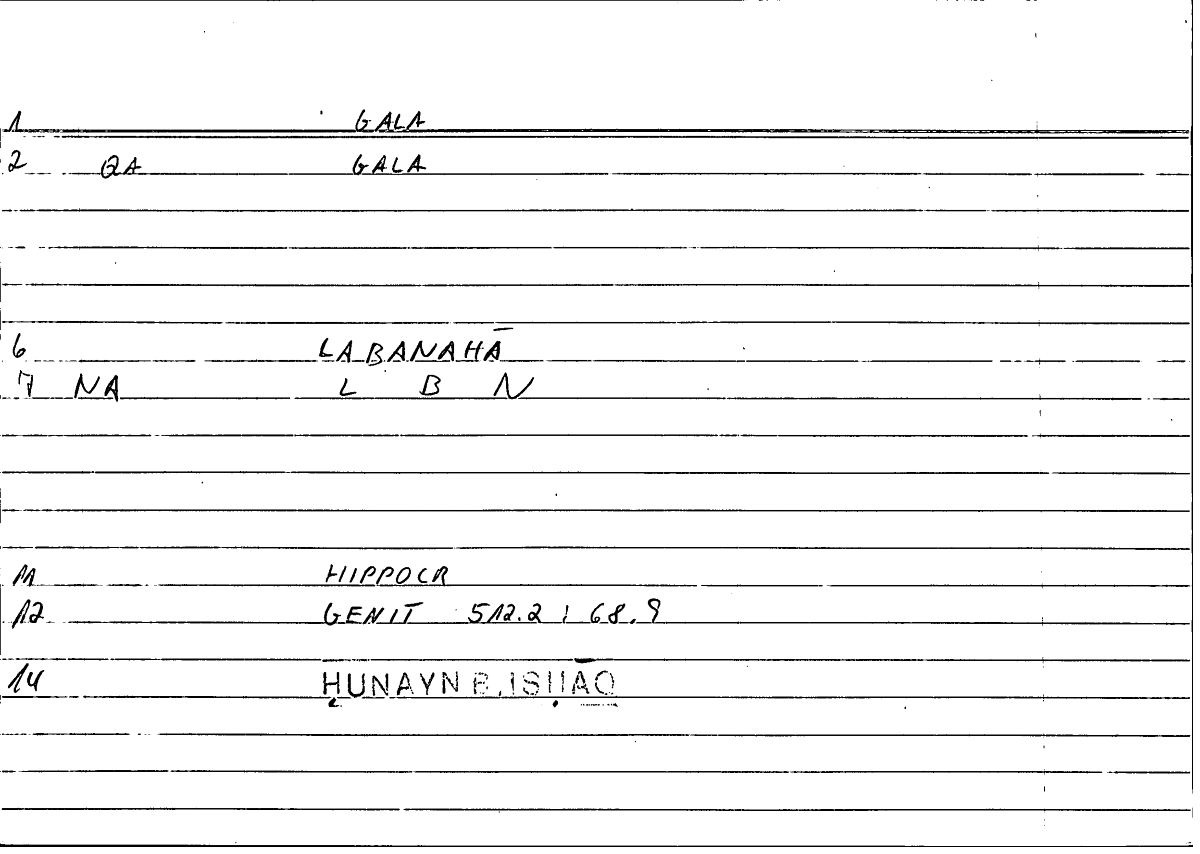 1 GALA
2 QA GALA
6 LABANAHĀ
7 NA L B N
11 HIPPOCR
12 GENIT 512.2 ; 68.9
14 ḤUNAYN B. ISḤĀQ